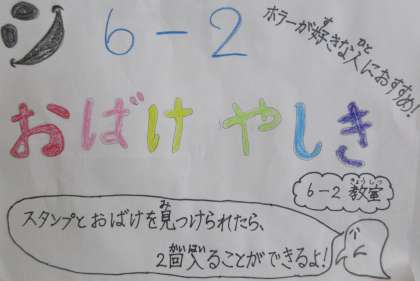 6-2
ホラーが好きな人におすすめ!
おばけやしき
6-2 教室
スタンプとおばけを見つけられたら、
2回入ることができるよ!